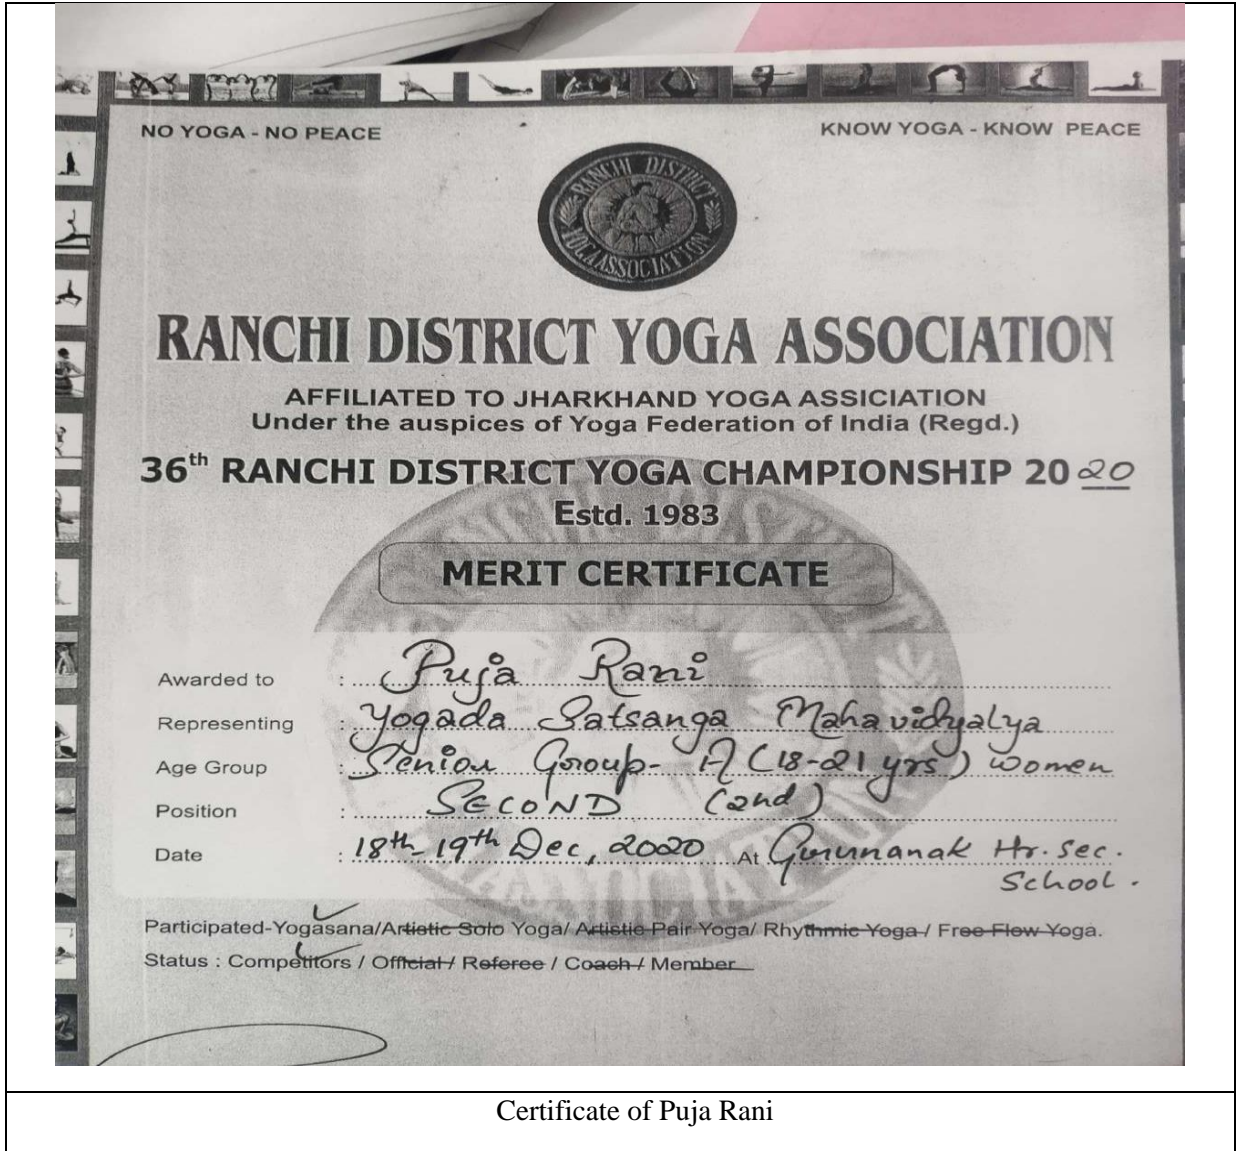 NO YOGA - NO PEACE
KNOW YOGA - KNOW PEACE
RANCHI DISTRICT
YOGA ASSOCIATION
RANCHI DISTRICT YOGA ASSOCIATION
AFFILIATED TO JHARKHAND YOGA ASSICIATION
Under the auspices of Yoga Federation of India (Regd.)
36th RANCHI DISTRICT YOGA CHAMPIONSHIP 2020
Estd. 1983
MERIT CERTIFICATE
Awarded to : Puja Rani
Representing : Yogada Satsanga Mahavidyalya
Age Group : Senior Group- A (18-21 yrs) women
Position : SECOND (2nd)
Date : 18th-19th Dec, 2020 At Gurunanak Hr. Sec.
School.
Participated-Yogasana/Artistic Solo Yoga/ Artistic Pair Yoga/ Rhythmic Yoga / Free Flow Yoga.
Status : Competitors / Official / Referee / Coach / Member
Certificate of Puja Rani